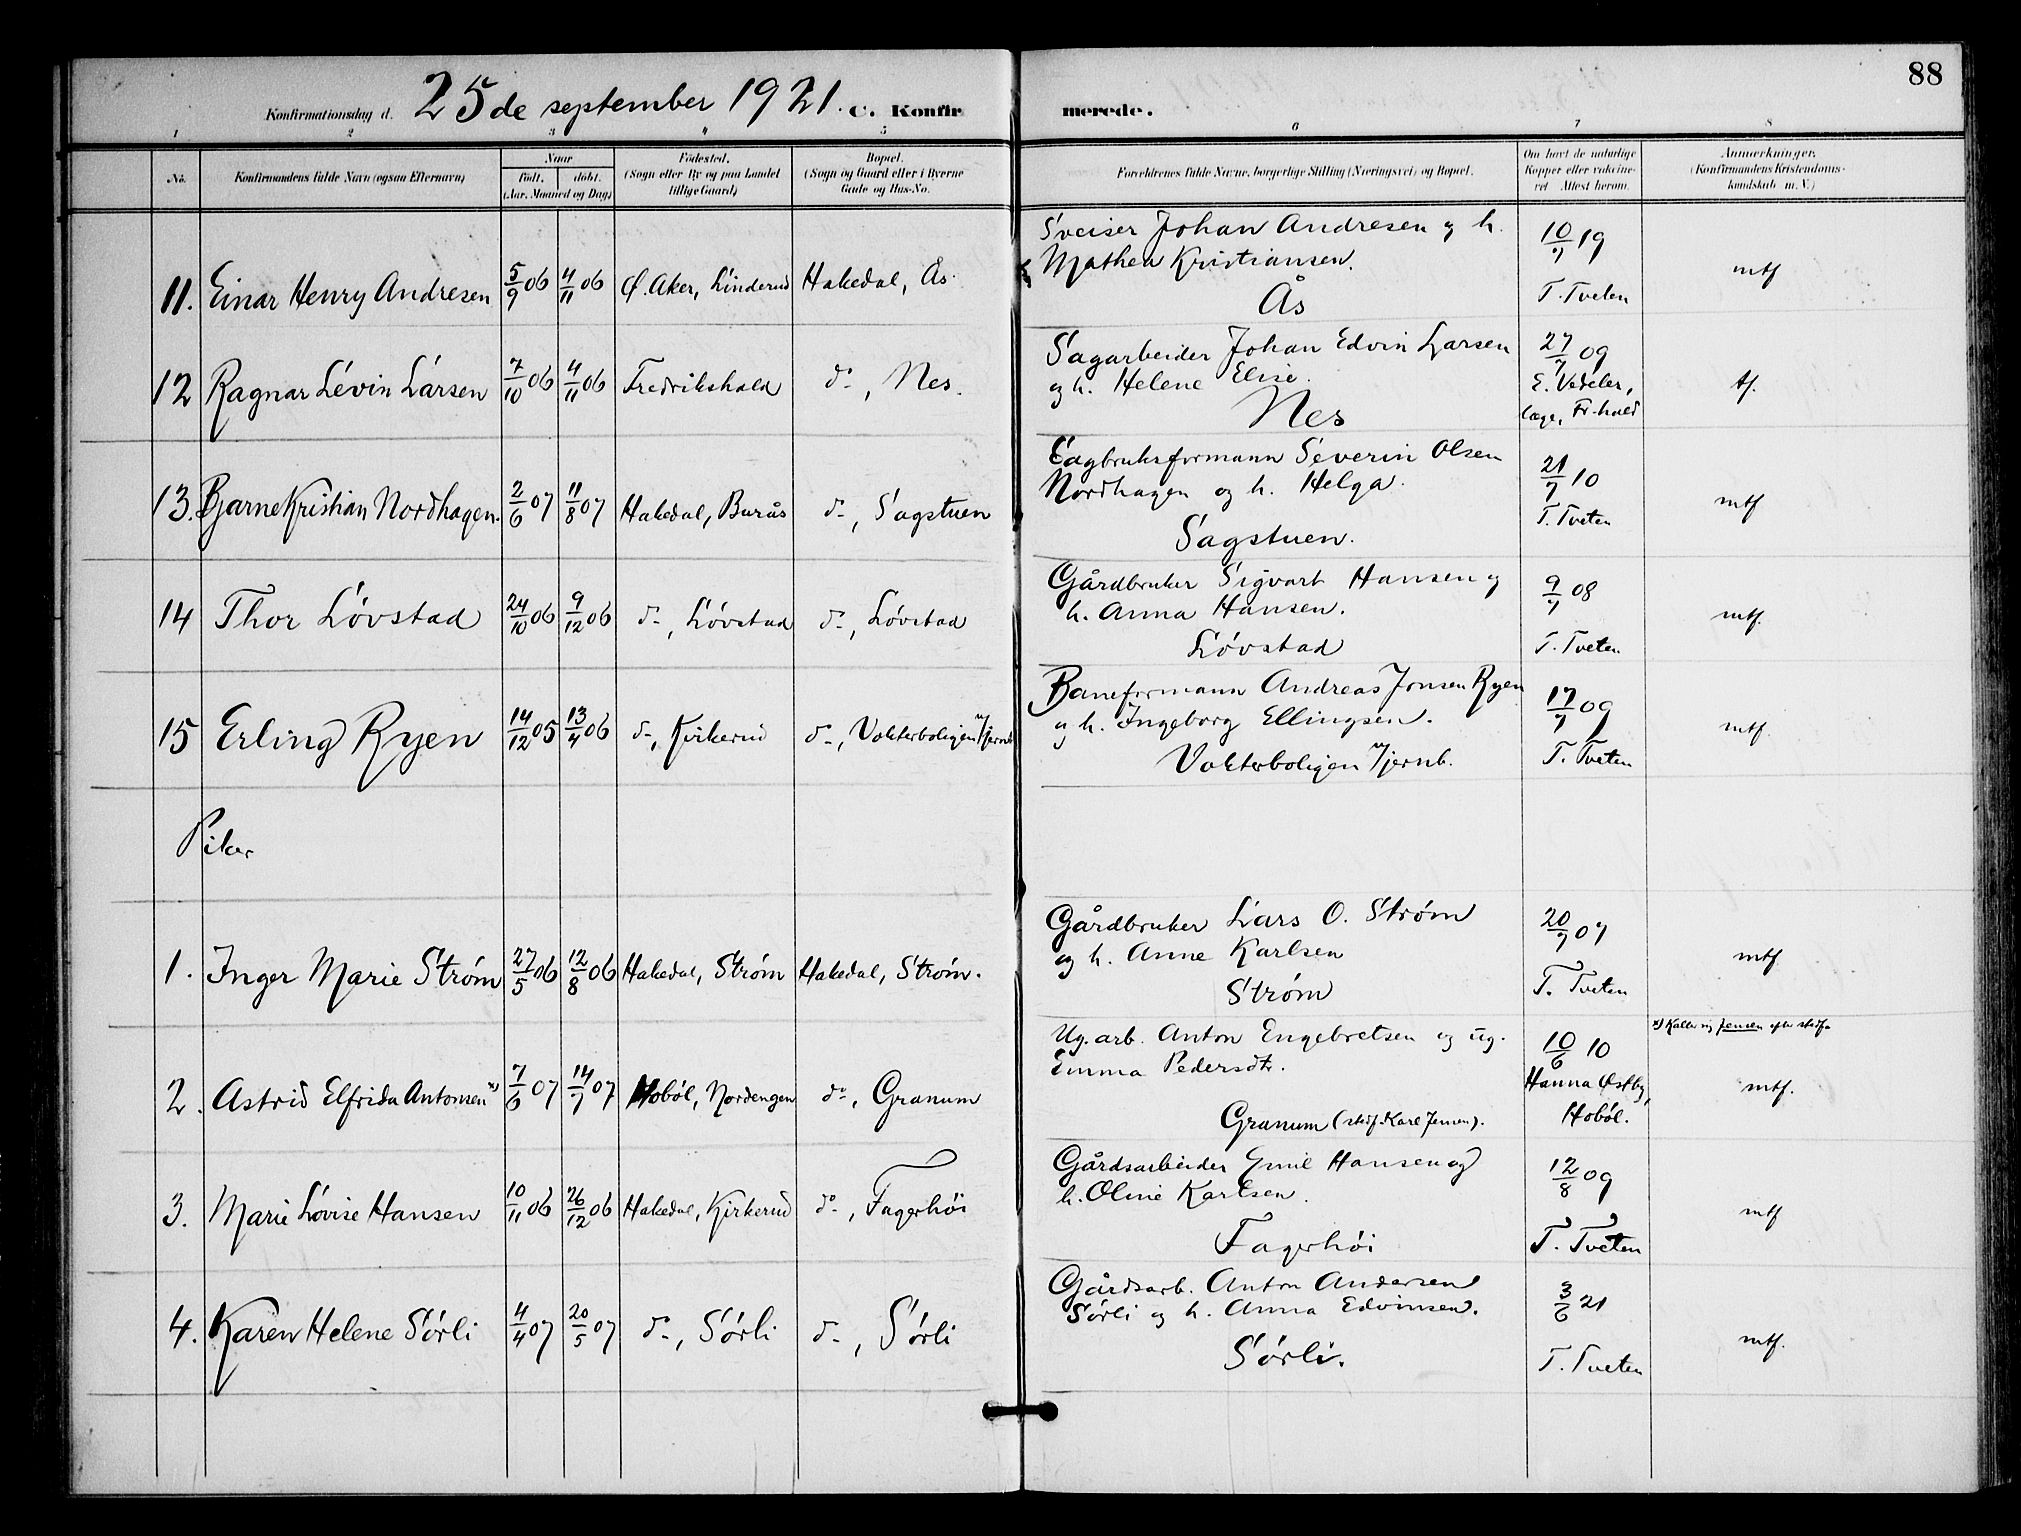 88
Konfirmationsdag d. 25de september 1921. C. Konfirmerede.
1 2 3 4 5 6 7 8
No. Konfirmandens fulde Navn (ogsaa Efternavn) Naar født. døbt. (Aar, Maaned og Dag) Fødested. (Sogn eller By og paa Landet tillige Gaard) Bopæl. (Sogn og Gaard eller i Byerne Gade og Hus-No. Forældrenes fulde Navne, borgerlige Stilling (Næringsvei) og Bopæl. Om havt de naturlige Kopper eller vakcineret Attest herom. Anmærkninger. (Konfirmandens Kristendomskundskab m. V.)
11. Einar Henry Andresen 5/9 06 4/11 06 Ø. Aker, Linderud Hakedal, Ås.
Sveiser Johan Andresen og h.
Mathea Kristiansen.
Ås
10/7 19
T. Tveten
mtf
12 Ragnar Lévin Larsen 7/10 06 4/11 06 Fredrikshald do, Nes.
Sagarbeider Johan Edvin Larsen
og h. Helene Elise.
Nes
27/7 09
E. Vedeler,
læge, Fr.hald
tf.
13. Bjarne Kristian Nordhagen. 2/6 07 11/8 07 Hakedal, Burås do, Sagstuen
Sagbruksformann Severin Olsen
Nordhagen og h. Helga.
Sagstuen.
21/7 10
T. Tveten
mtf
14 Thor Lövstad 24/10 06 9/12 06 do, Lövstad do, Lövstad
Gårdbruker Sigvart Hansen og
h. Anna Hansen.
Lövstad
9/7 08
T. Tveten
mtf.
15 Erling Ryen 14/12 05 13/4 06 do, Kirkerud do, Vokterboligen v/jernb
Baneformann Andreas Jonsen Ryen
og h. Ingeborg Ellingsen.
Vokterboligen v/jernb.
17/7 09
T. Tveten
mtf.
Piker
1. Inger Marie Ström 27/5 06 12/8 06 Hakedal, Ström Hakedal, Ström.
Gårdbruker Lars O. Ström
og h. Anne Karlsen
Ström
20/7 07
T. Tveten
mtf
2. Astrid Elfrida Antonsen x) 7/6 07 14/7 07 Hobøl, Nordengen do, Granum
Ug. arb. Anton Engebretsen og ug.
Emma Pedersdtr.
Granum (stedf. Karl Jensen).
10/6 10
Hanna Østby,
Hobøl.
x) Kaller sig Jensen efter stedf.
mtf.
3. Marie Lovise Hansen 10/11 06 26/12 06 Hakedal, Kirkerud do, Fagerhöi
Gårdsarbeider Emil Hansen og
h. Oline Karlsen.
Fagerhöi
12/8 09
T. Tveten
mtf
4. Karen Helene Sörli 4/4 07 20/5 07 do, Sörli do, Sörli
Gårdsarb. Anton Andersen
Sörli og h. Anna Edvinsen.
Sörli.
3/6 21
T. Tveten
mtf.